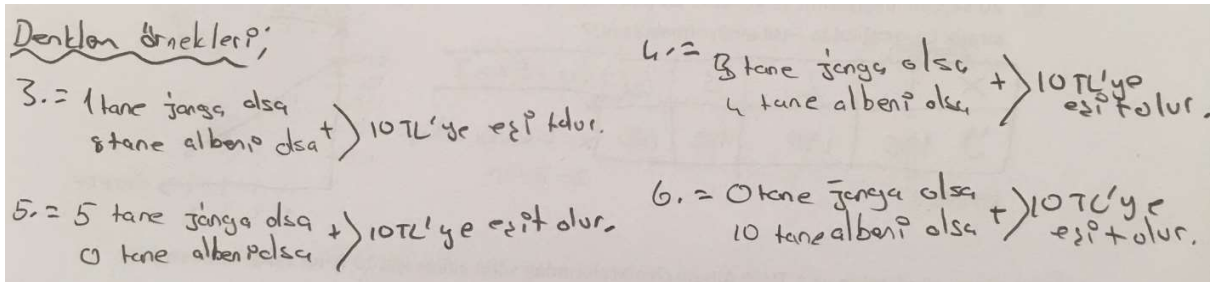 Denklem örnekleri;
3.= 1 tane janga olsa
8 tane albeni olsa + > 10 TL'ye eşit olur.
4.= 3 tane janga olsa
4 tane albeni olsa + > 10 TL'ye
eşit olur.
5.= 5 tane janga olsa
0 tane albeni olsa + > 10 TL'ye eşit olur.
6.= 0 tane janga olsa
10 tane albeni olsa + > 10 TL'ye
eşit olur.